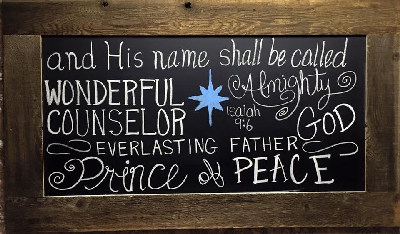 and His name shall be called
WONDERFUL
COUNSELOR
Almighty
GOD
Isaiah
9:6
EVERLASTING FATHER
Prince of PEACE